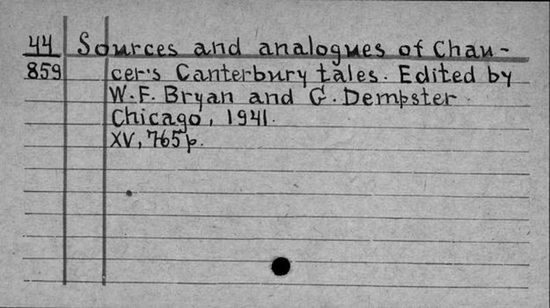 44 Sources and analogues of Chau-
859 cer's Canterbury tales. Edited by
W.F. Bryan and G. Dempster.
Chicago, 1941.
XV, 765p.